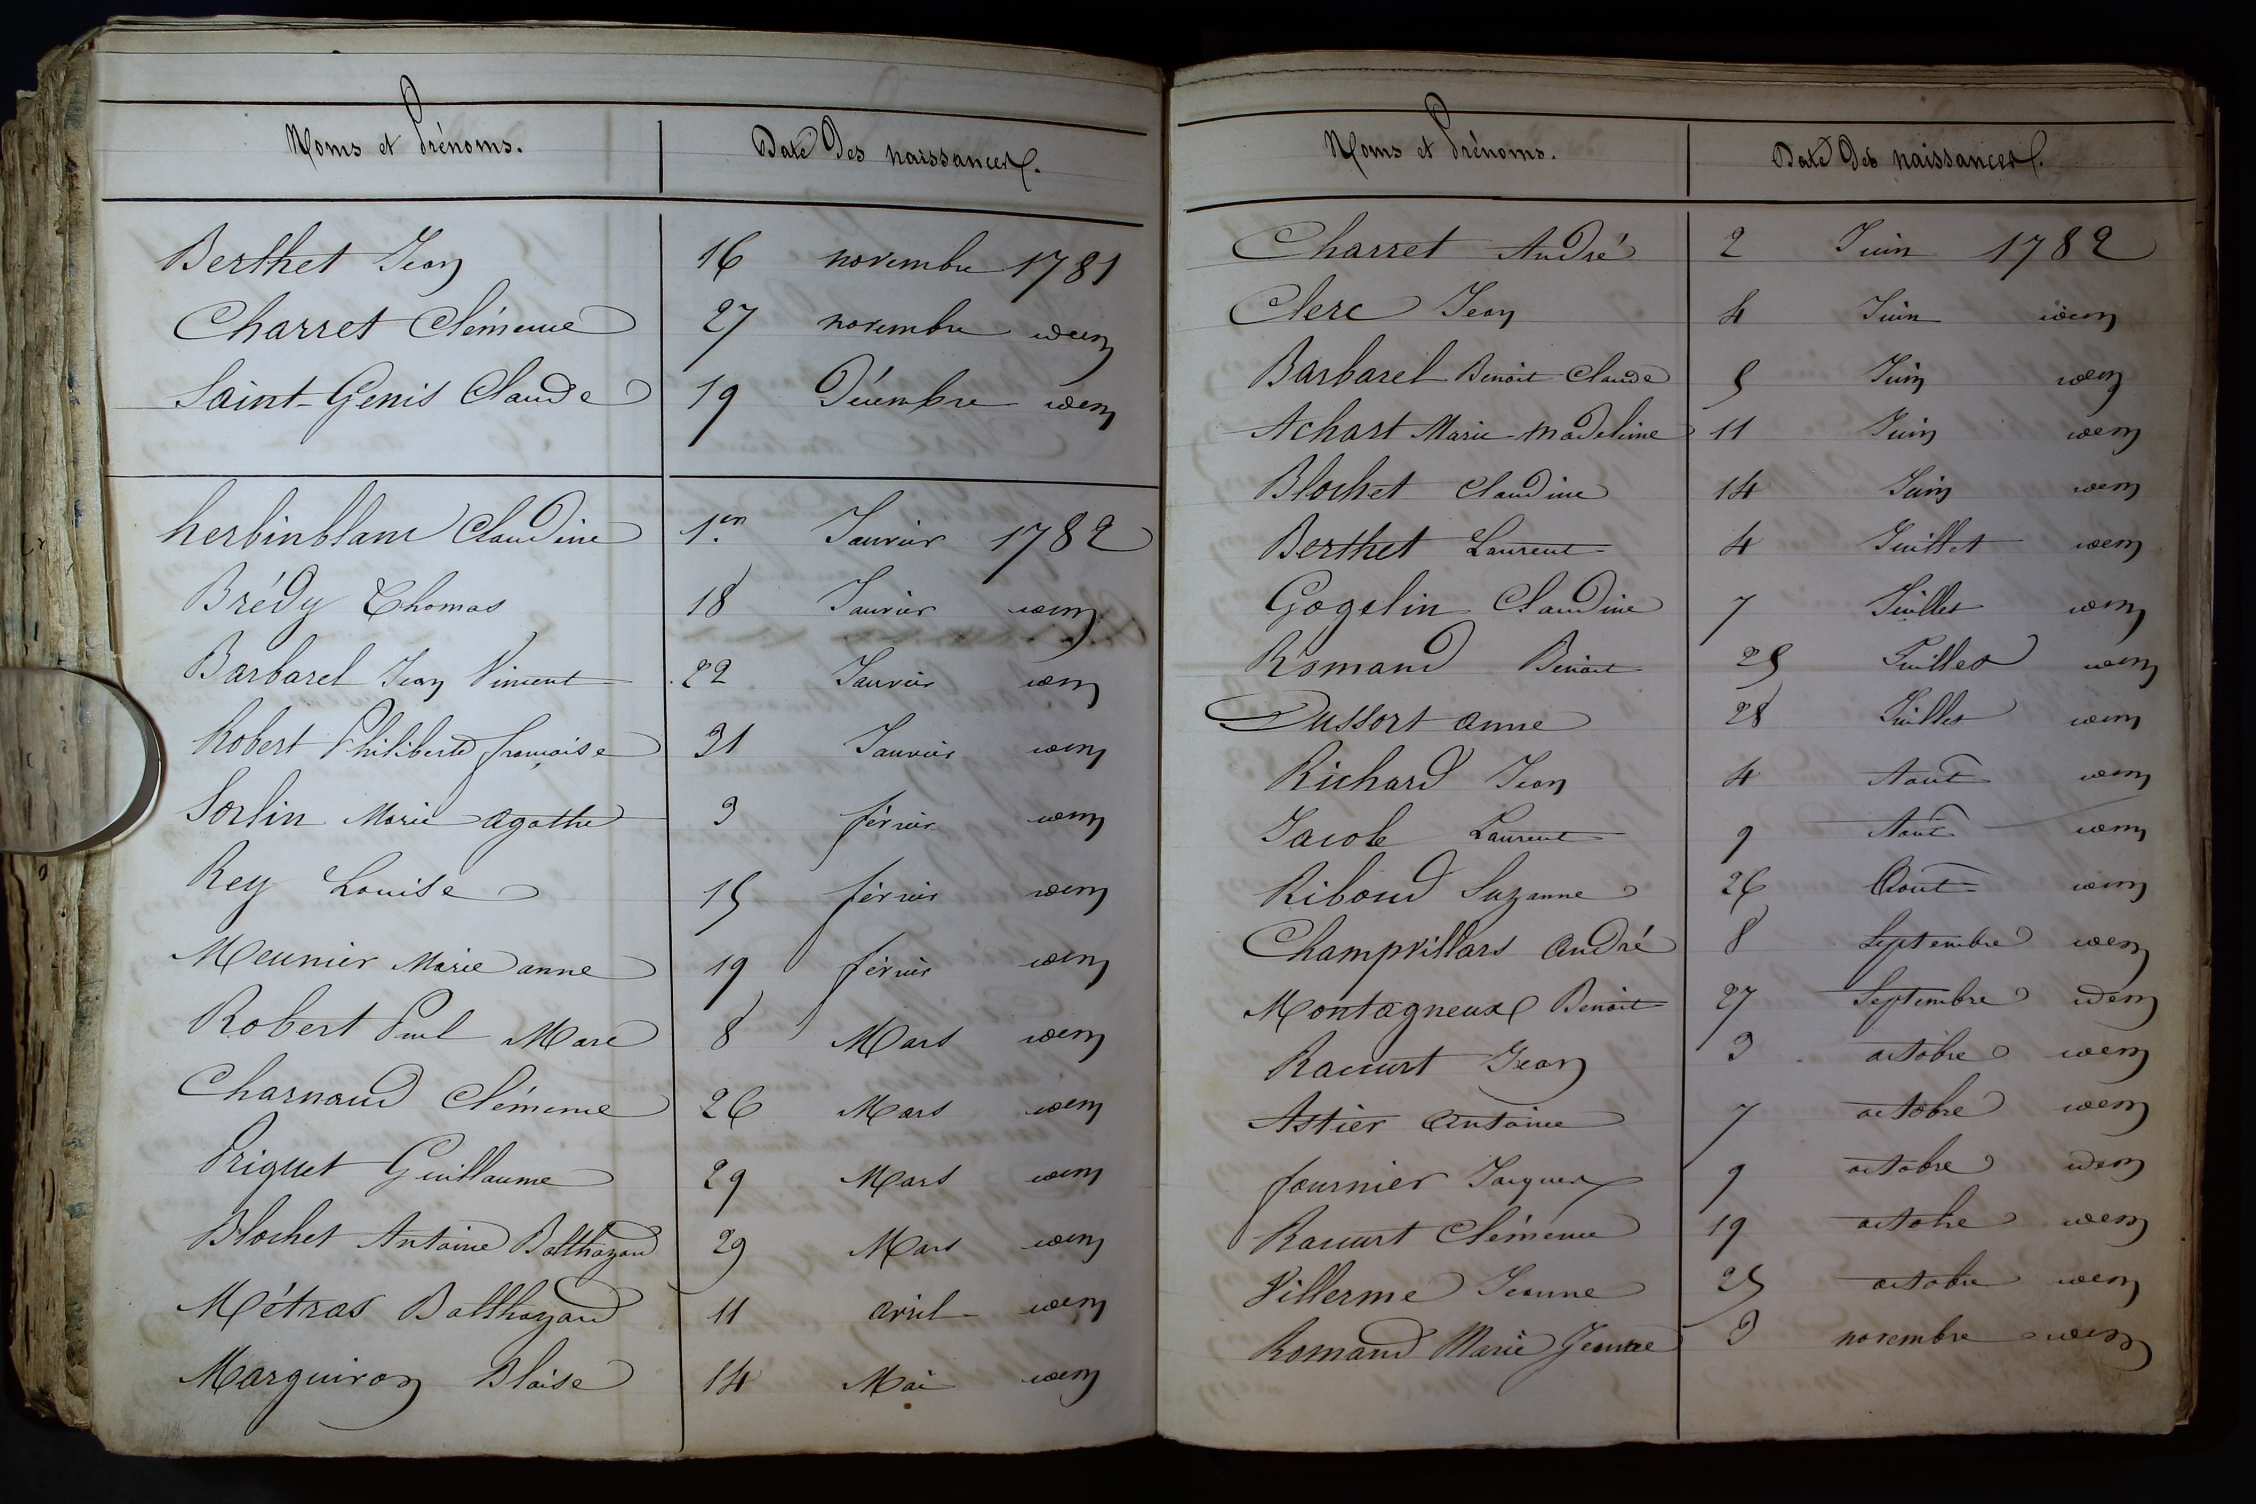 Noms et Prénoms. Date des naissances.
Berthet Jean 16 novembre 1781
Charret Clémence 27 novembre idem
Saint-Genis Claude 19 Décembre idem
herbinblanc Claudine 1er. Janvier 1782
Brédy Thomas 18 Janvier idem
Barbarel Jean Vincent 22 Janvier idem
Robert Philiberte françoise 31 Janvier idem
Sorlin Marie agathe 3 février idem
Rey Louise 15 février idem
Meunier Marie anne 19 février idem
Robert Paul Marc 8 Mars idem
Charnaud Clémence 26 Mars idem
Priquet Guillaume 29 Mars idem
Blochet Antoine Balthazard 29 Mars idem
Métras Balthazard 11 avril idem
Marguiron Blaise 14 Mai idem
Noms et Prénoms. Date des naissances.
Charret André 2 Juin 1782
Clerc Jean 4 Juin idem
Barbarel Benoit Claude 5 Juin idem
Achart Marie Madeleine 11 Juin idem
Blochet Claudine 14 Juin idem
Berthet Laurent 4 Juillet idem
Gogelin Claudine 7 Juillet idem
Romand Benoit 25 Juillet idem
Dussort anne 28 Juillet idem
Richard Jean 4 Aout idem
Jacob Laurent 9 Aout idem
Riboud Suzanne 26 Aout idem
Champvillars André 8 Septembre idem
Montagneux Benoit 27 Septembre idem
Racurt Jean 3 octobre idem
Astier Antoine 7 octobre idem
fournier Jacques 9 octobre idem
Racurt Clémence 19 octobre idem
Villerme Jeanne 25 octobre idem
Romand Marie Jeanne 3 novembre idem